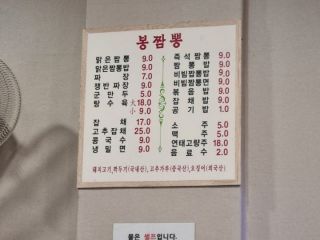 봉짬뽕
맑은짬뽕 9.0
맑은짬뽕밥 9.0
짜장 7.0
쟁반짜장 9.0
군만두 5.0
탕수육 大18.0
小 9.0
잡채 17.0
고추잡채 25.0
콩국수 9.0
냉밀면 9.0
즉석짬뽕 9.0
짬뽕밥 9.0
비빔짬뽕밥 9.0
비빔짬뽕면 9.0
볶음밥 8.0
잡채밥 9.0
공기밥 1.0
소주 5.0
맥주 5.0
연태고량주 18.0
음료수 2.0
돼지고기,깍두기(국내산), 고추가루(중국산), 오징어(외국산)
물은 셀프입니다.